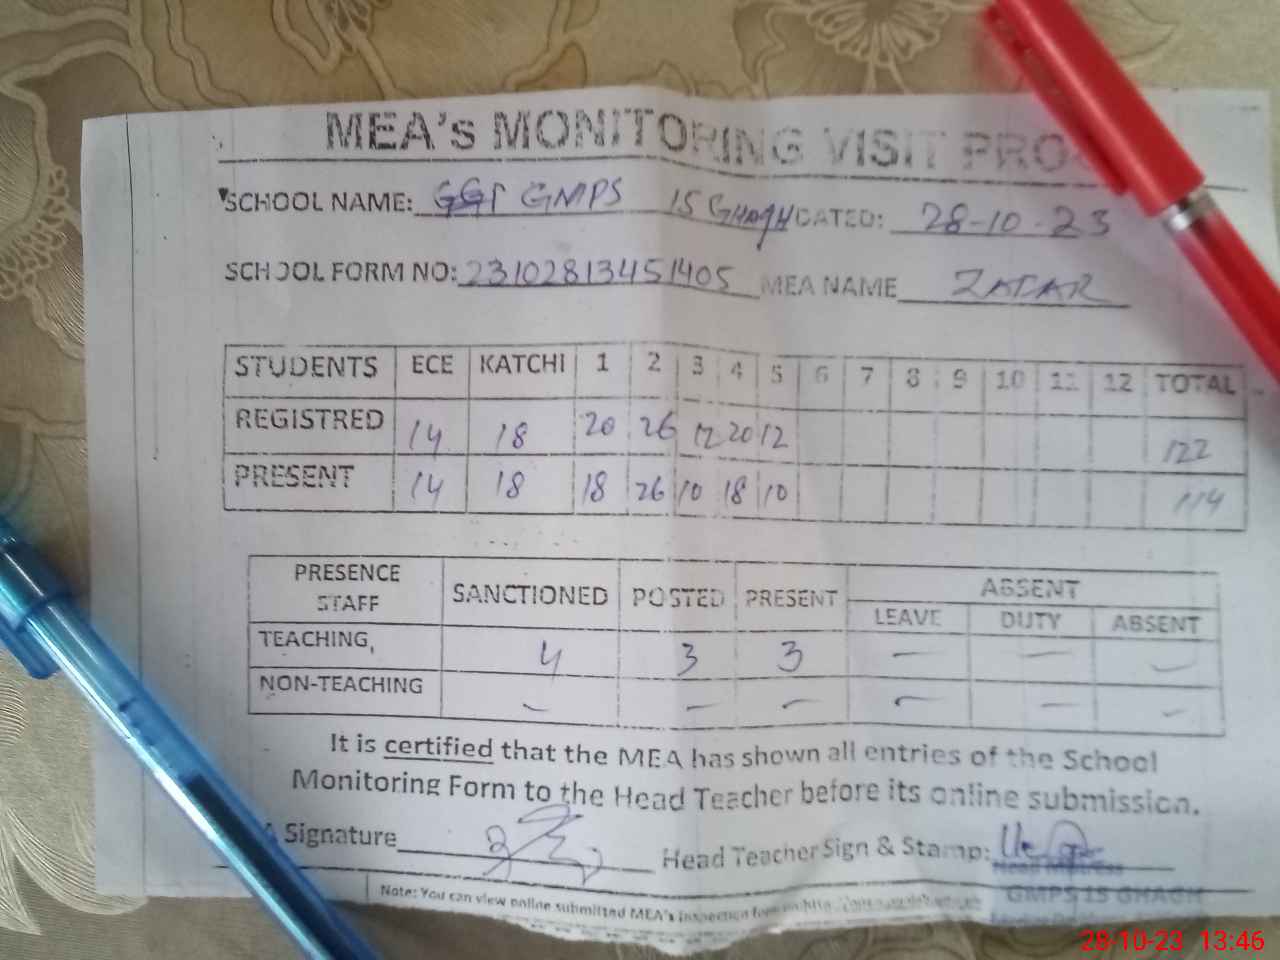 MEA's MONITORING VISIT PRO
SCHOOL NAME: GMPS 15 GHAGH DATED: 28-10-23
SCHOOL FORM NO: 23102813451405 MEA NAME ZAFAR
STUDENTS ECE KATCHI 1 2 3 4 5 6 7 8 9 10 11 12 TOTAL
REGISTRED 14 18 20 26 12 20 12 122
PRESENT 14 18 18 26 10 18 10 114
PRESENCE STAFF SANCTIONED POSTED PRESENT ABSENT
LEAVE DUTY ABSENT
TEACHING, 4 3 3 — — —
NON-TEACHING — — — — — —
It is certified that the MEA has shown all entries of the School
Monitoring Form to the Head Teacher before its online submission.
A Signature Head Teacher Sign & Stamp:
Head Mistress
GMPS 15 GHAGH
Note: You can view online submitted MEA's inspection form on
28-10-23 13:46